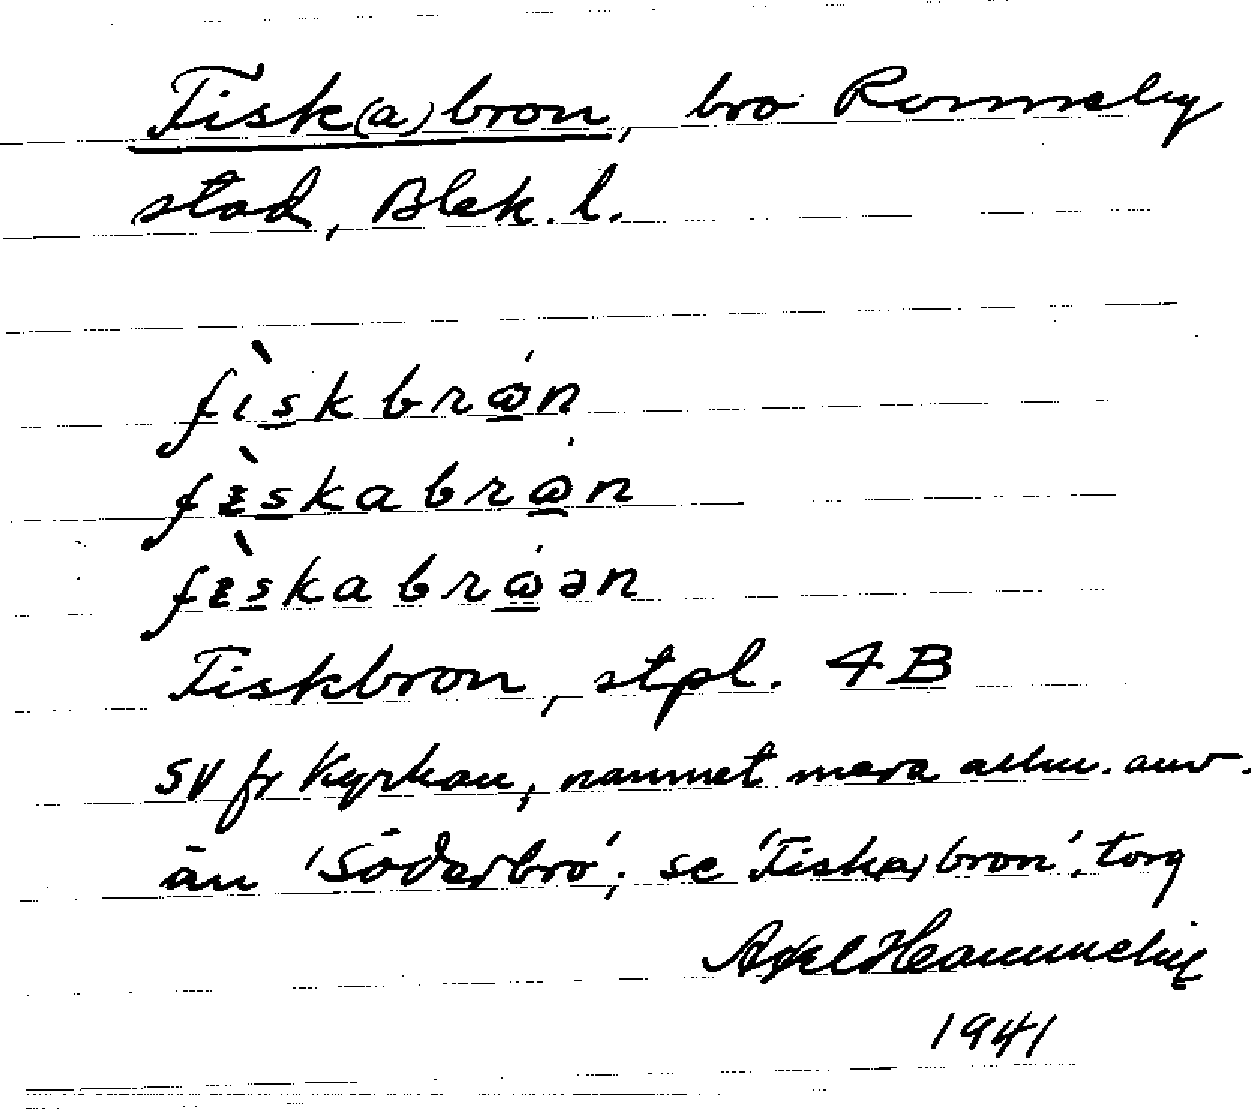 Fisk(a)bron, bro Ronneby
stad, Blek. l.
fìskbrɷ́n
fèskabrɷ́n
fèskabrɷ́ən
Fiskbron, stpl. 4B
SV fr Kyrkan, namnet mera allm. anv.
än 'Söderbro'; se 'Fisk(a)bron', torg
Axel
1941